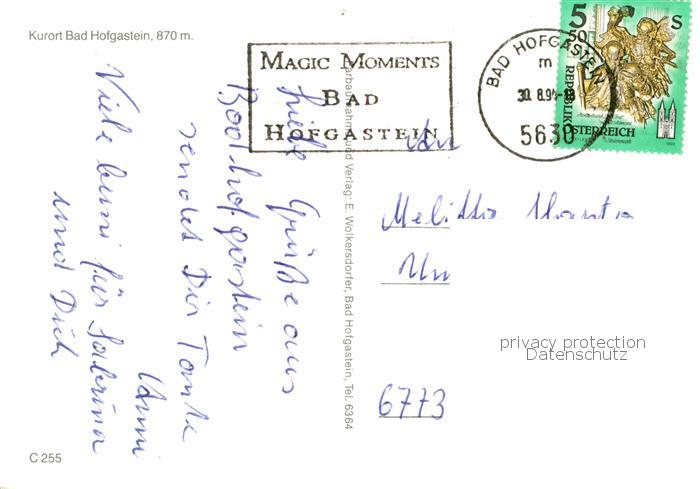 Kurort Bad Hofgastein, 870 m.
MAGIC MOMENTS
BAD
HOFGASTEIN
BAD HOFGASTEIN
m
30.8.94-18
5630
5
50
S
REPUBLIK
ÖSTERREICH
Liebe Grüße aus
Bad hofgastein
sendet Dir Tante
Anni
Viele bussi für Sabrina
und Dich
Verlag: E. Wolkersdorfer, Bad Hofgastein, Tel. 6364
An
Melitta
6773
privacy protection
Datenschutz
C 255